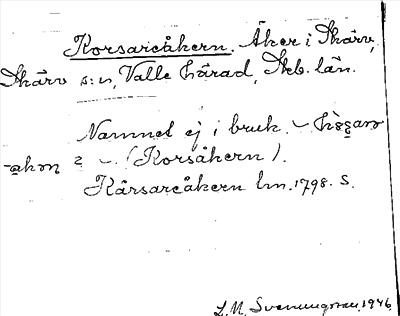 Korsareåkern. Åker i Skärv,
Skärv s:n, Valle härad, Skb. län.
Namnet ej i bruk. –
2 –. (Korsåkern).
Kårsareåkern lm. 1798. S.
L. M. Svenungsson, 1946